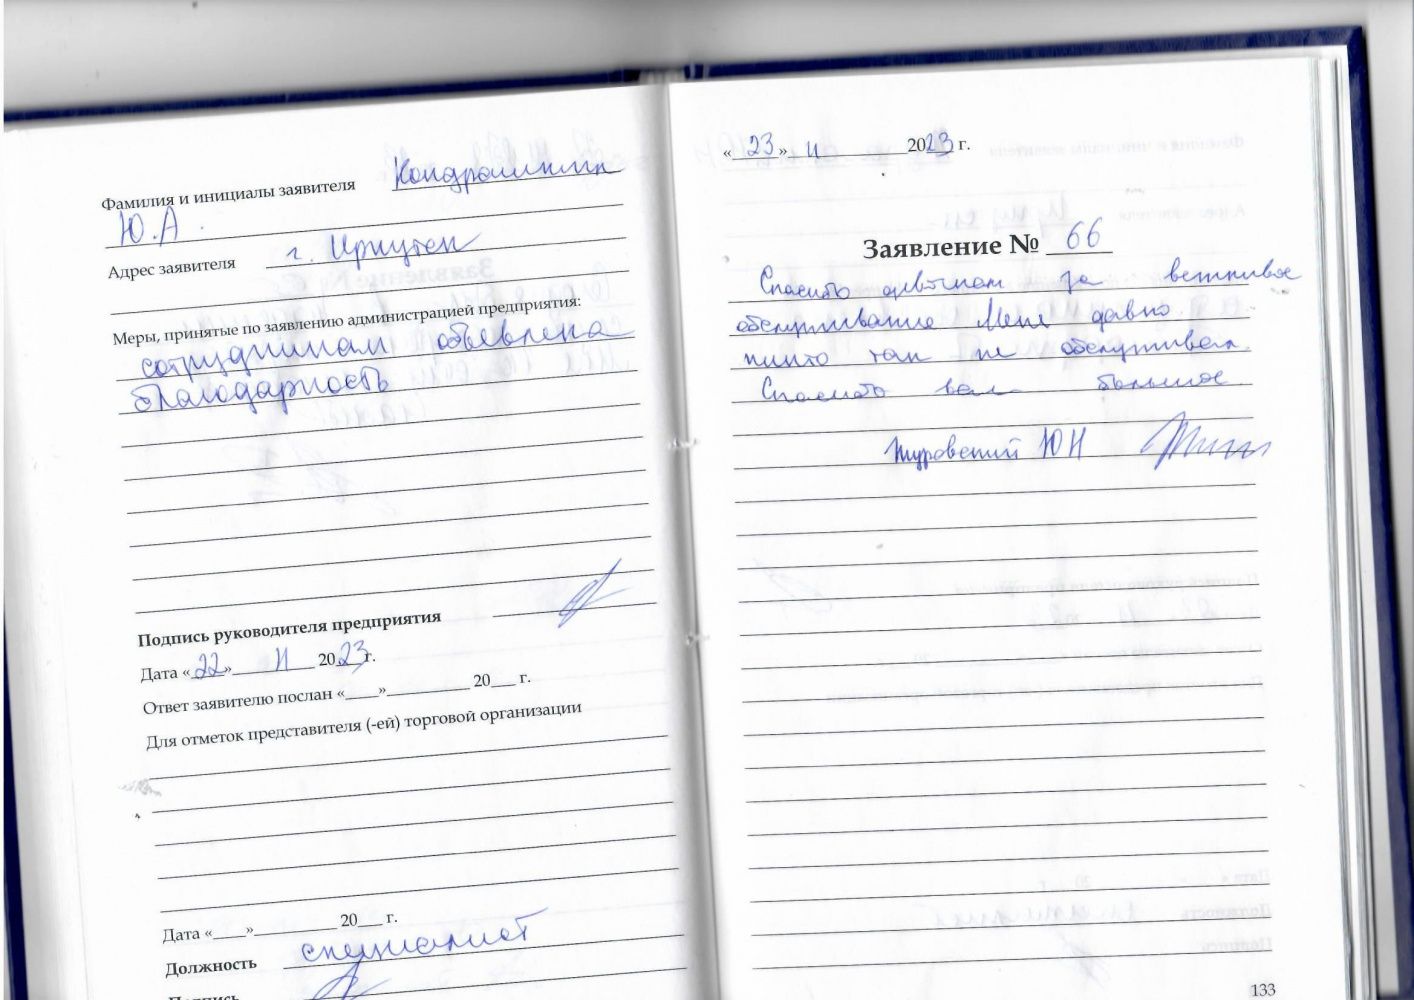 Фамилия и инициалы заявителя
Ю.А.
Адрес заявителя г. Иркутск
Меры, принятые по заявлению администрацией предприятия:
сотрудникам объявлена
благодарность
Подпись руководителя предприятия
Дата «22» 11 2023г.
Ответ заявителю послан «____»__________ 20___ г.
Для отметок представителя (-ей) торговой организации
Дата «____»__________ 20___ г.
Должность специалист
Подпись
«23» 11 2023 г.
Заявление № 66
Спасибо девочкам за вежливое
обслуживание Меня давно
никто так не обслуживал.
Спасибо вам большое
Ю Н
133